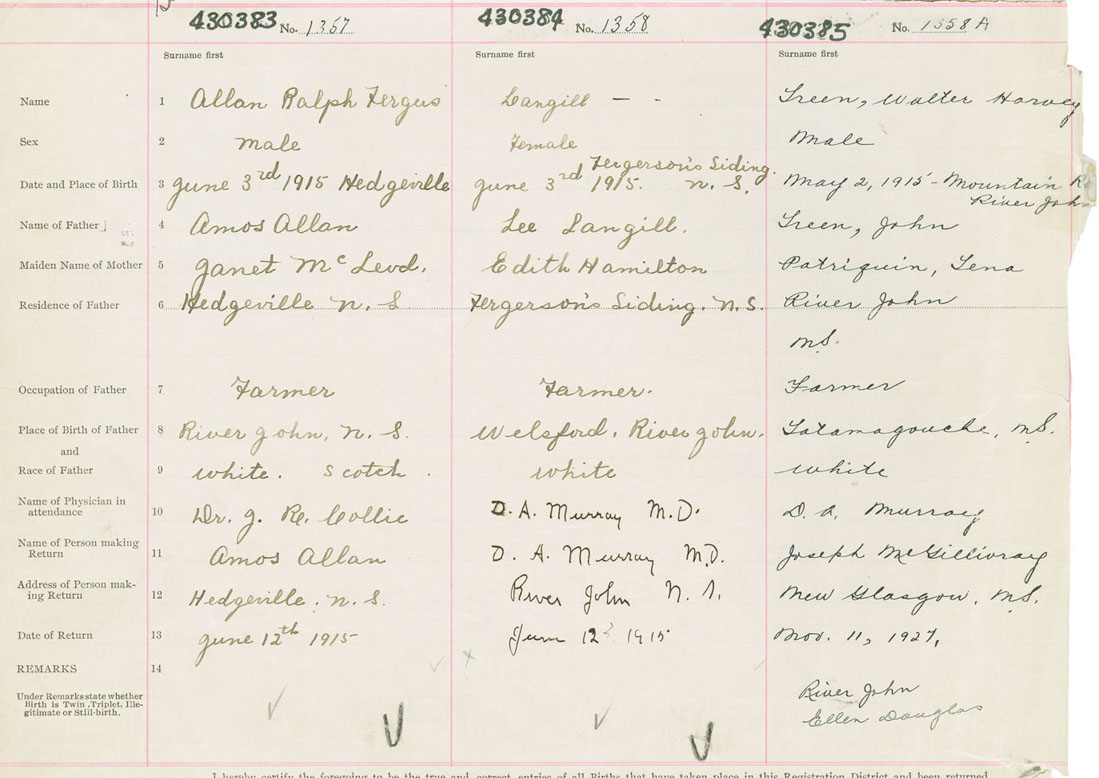 430383 No. 1357 430384 No. 1358 430385 No. 1358 A
Surname first Surname first Surname first
Name 1 Allan Ralph Fergus Langill — - Green, Walter Harvey
Sex 2 male Female Male
Fergerson's Siding.
Date and Place of Birth 3 June 3rd 1915 Hedgeville June 3rd 1915. N. S. May 2, 1915 - Mountain
River John
Name of Father 4 Amos Allan Lee Langill. Green, John
Maiden Name of Mother 5 Janet Mc Leod. Edith Hamilton Patriquin, Lena
Residence of Father 6 Hedgeville N. S. Fergerson's Siding. N. S. River John
N.S.
Occupation of Father 7 Farmer Farmer. Farmer
Place of Birth of Father 8 River John, N. S. Welsford. River John. Tatamagouche, N.S.
and
Race of Father 9 white. Scotch. white White
Name of Physician in
attendance 10 Dr. J. R. Collie D. A. Murray M.D. D. A. Murray
Name of Person making
Return 11 Amos Allan D. A. Murray M.D. Joseph McGillivray
Address of Person mak-
ing Return 12 Hedgeville. N. S. River John N. S. New Glasgow, N.S.
Date of Return 13 June 12th 1915 June 12 1915 Nov. 11, 1927,
REMARKS 14
Under Remarks state whether
Birth is Twin, Triplet, Ille-
gitimate or Still-birth.
River John
Ellen Douglas
I hereby certify the foregoing to be the true and correct entries of all Births that have taken place in this Registration District and been returned